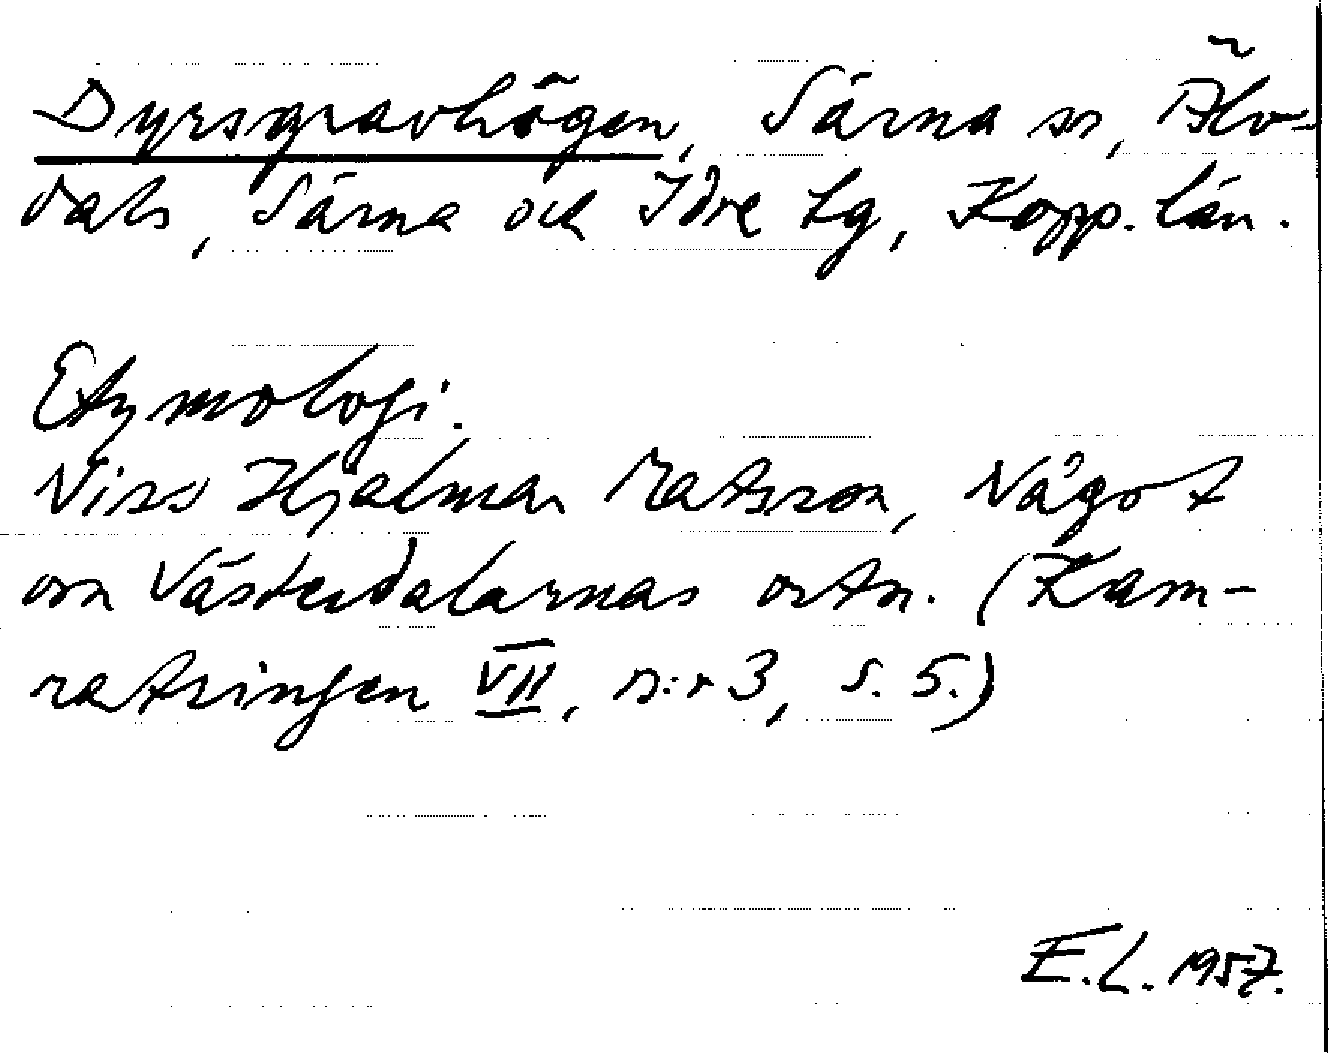 Dyrsgravhögen, Särna sn, Älv-
dals, Särna och Idre tg, Kopp. län.
Etymologi.
Viss Hjalmar Matsson, Något
om Västerdalarnas ortn. (Kam-
ratringen VII, n:r 3, s. 5.)
E.L. 1957.